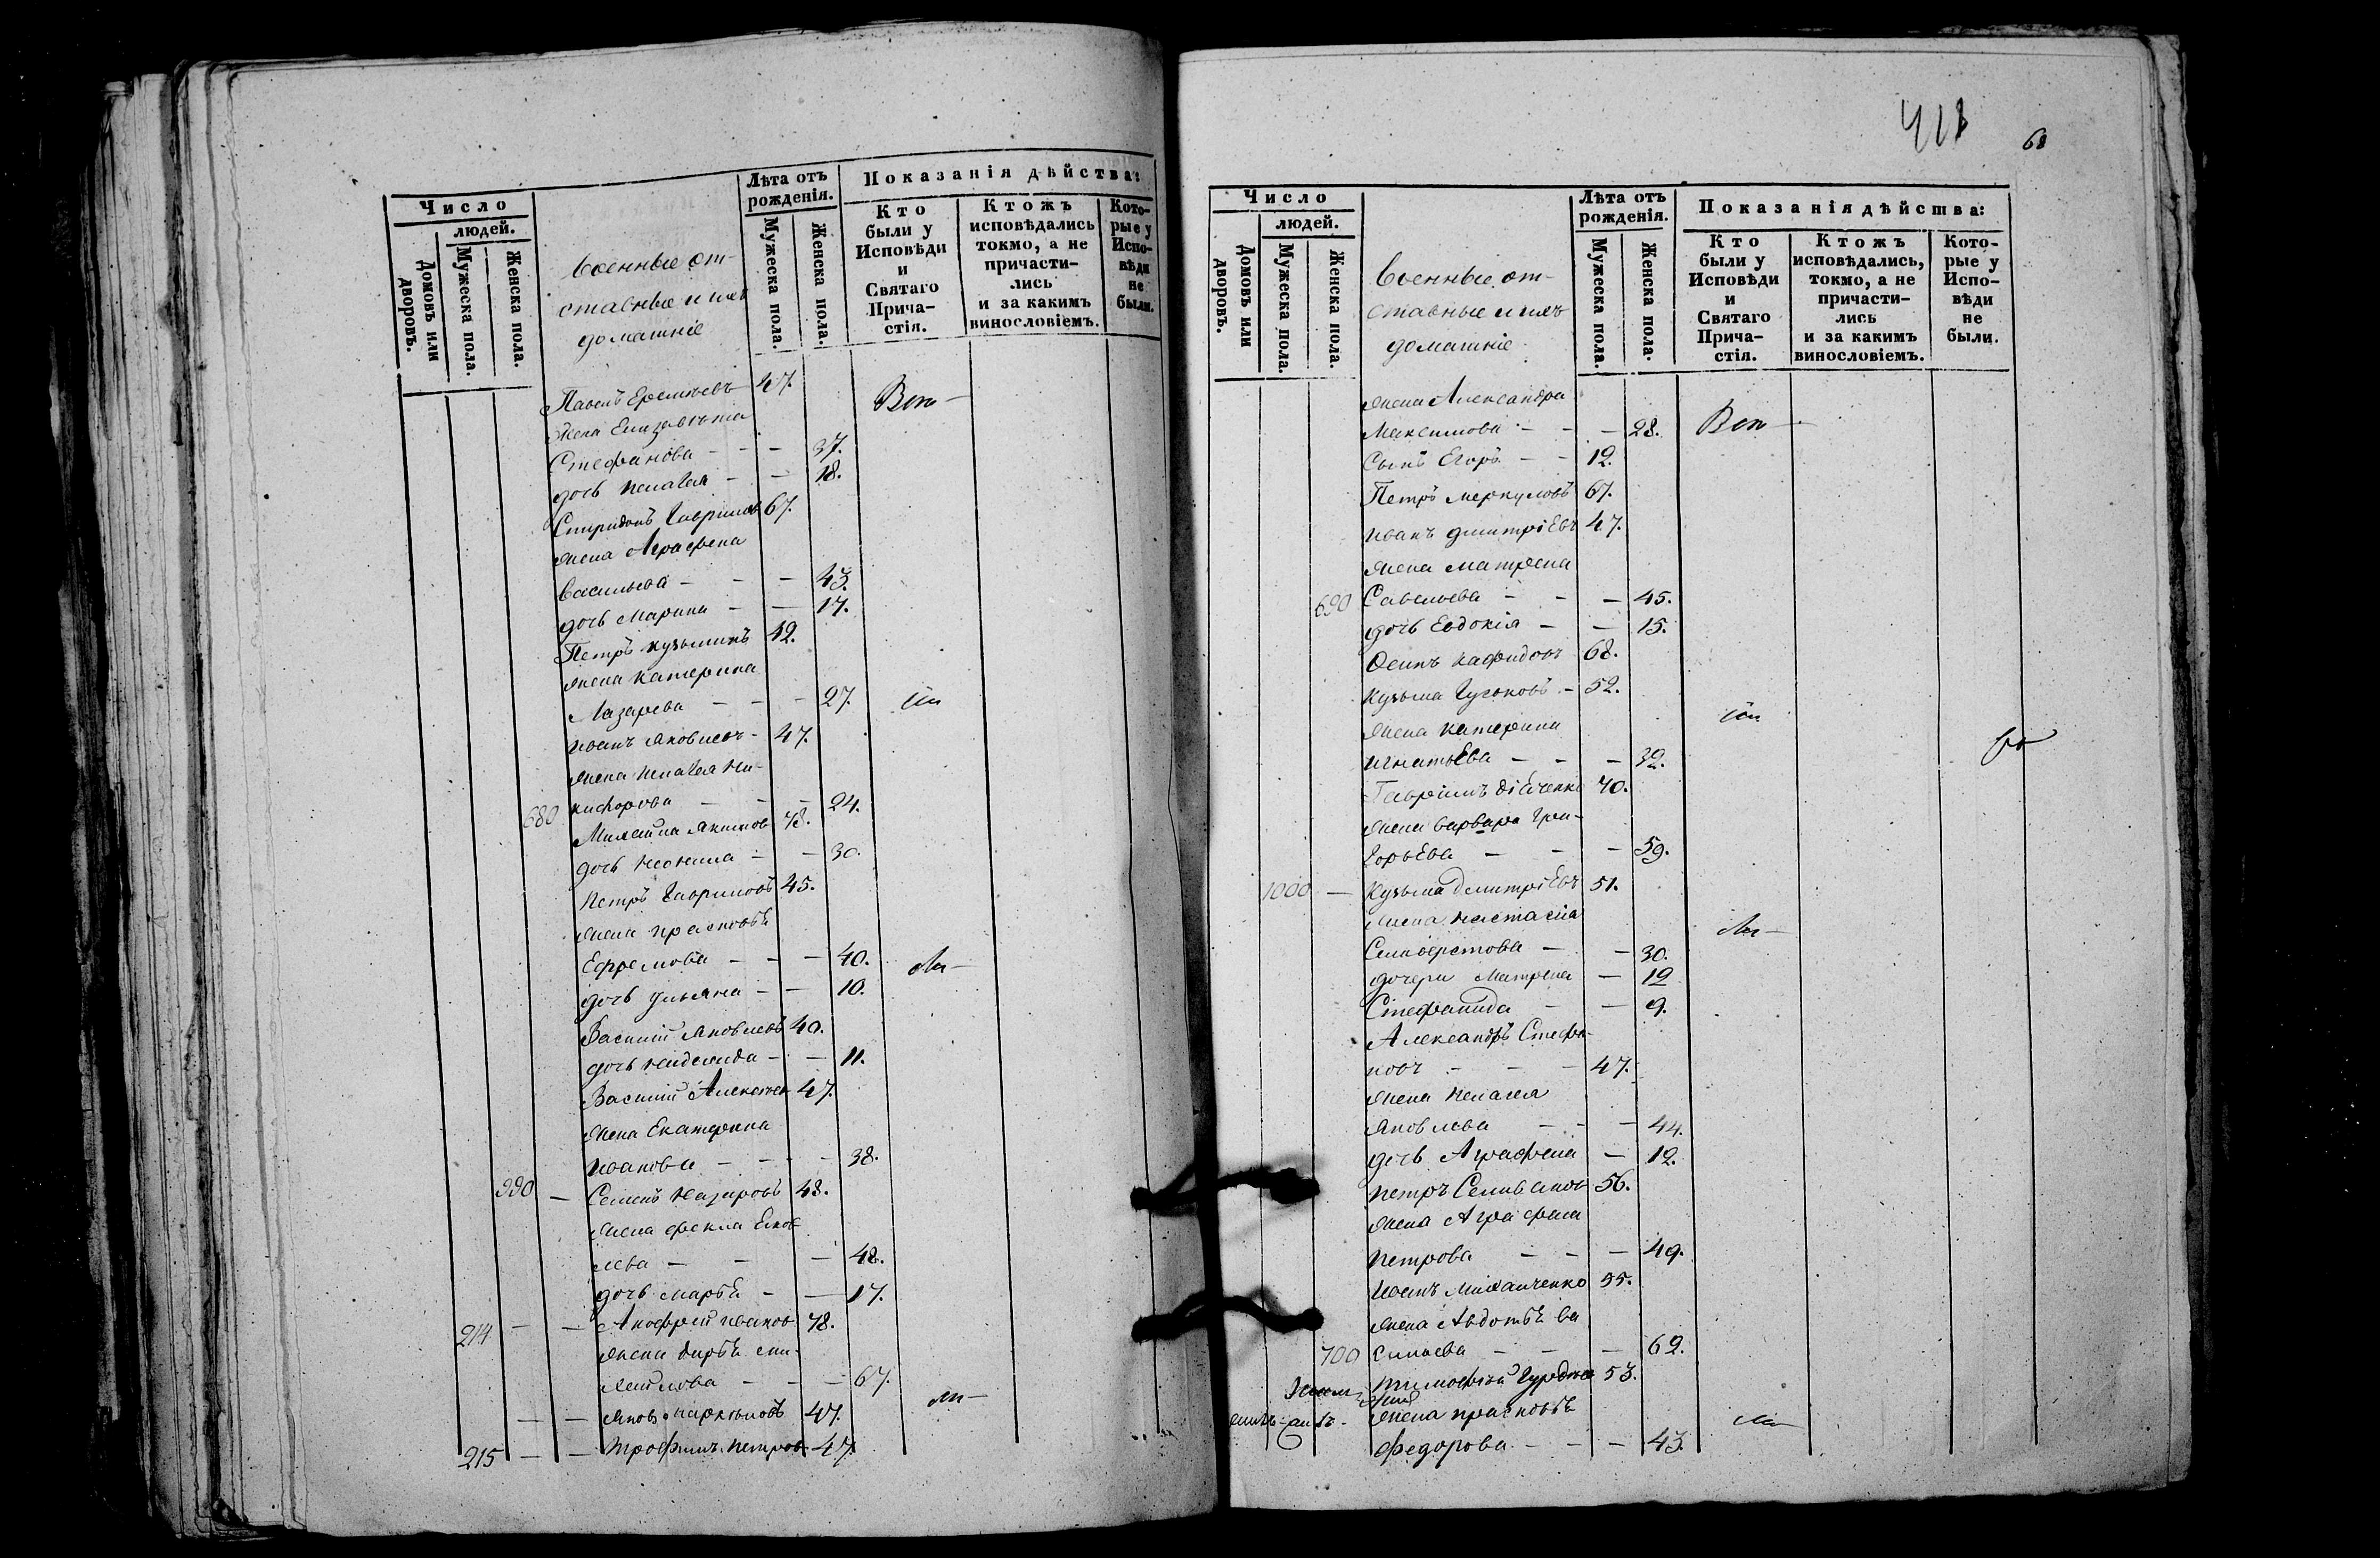 Число
людей.
Домовъ или дворовъ.
Мужеска пола.
Женска пола.
Военные от-
ставные и ихъ
домашніе
Лѣта отъ рожденія.
Мужеска пола.
Женска пола.
Показанія дѣйства:
Кто были у Исповѣди и Святаго Прича-стія.
Ктожъ исповѣдались токмо, а не причасти-лись и за какимъ винословіемъ.
Кото-рые у Испо-вѣди не были.
Павелъ Еремѣевъ 47.
жена Елизавѣта
Стефанова – – – 37.
дочь Пелагея – – 18.
Спиридонъ Гавриловъ 67.
жена Аграфена
Васильева – – – 43.
дочь Марина – – 17.
Петръ Кузьминъ 42.
жена Катерина
Лазарева – – – 27.
Иванъ Яковлевъ – 47.
жена Пелагея Ни-
680 кифорова – – – 24.
Якимов 48.
дочь – – 30.
Петръ Гавриловъ 45.
жена Прасковья
Ефремова – – – 40.
дочь Ульяна – – 10.
Василій Яковлевъ 40.
дочь – – 11.
Василій 47.
жена Екатерина
Иванова – – – 38.
990 – Семенъ Назаровъ 48.
жена Фекла Яков
лева – – – 48.
дочь Марья – – 17.
214 – – Иванов 78.
жена Дарья Ми-
хайлова – – – 67.
– – Яковъ 47.
215 – – Трофимъ Петров 47.
418
68
Число
людей.
Домовъ или дворовъ.
Мужеска пола.
Женска пола.
Военные от-
ставные и ихъ
домашніе
Лѣта отъ рожденія.
Мужеска пола.
Женска пола.
Показанія дѣйства:
Кто были у Исповѣди и Святаго Прича-стія.
Ктожъ исповѣдались, токмо, а не причасти-лись и за какимъ винословіемъ.
Кото-рые у Испо-вѣди не были.
жена Александра
Максимова – – – 28.
Сынъ Егоръ – – 12.
Петръ Меркуловъ 67.
Иванъ Дмитріевъ 47.
жена Матрена
690 Савельева – – – 45.
дочь Евдокія – – 15.
Осипъ 68.
Кузьма Гуськовъ – 52.
жена Катерина
Игнатьева – – – 32.
Гавріилъ 70.
жена Варвара Гри-
горьева – – – 59.
1000 – Кузьма Дмитріевъ 51.
жена Настасія
Селиверстова – – 30.
дочери Матрена – 12
Стефанида – – 9.
Александръ Стефа-
новъ – – – 47.
жена Пелагея
Яковлева – – – 44.
дочь Аграфена – 12.
Петръ Селиванов 56.
жена Аграфена
Петрова – – – 49.
Иванъ Михайченко 55.
жена Авдотья Ва
700 сильева – – – 62.
Тимофѣй 53.
жена Прасковья
Федорова – – – 43.